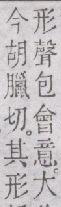 形聲包會意。大
今胡臘切。其形